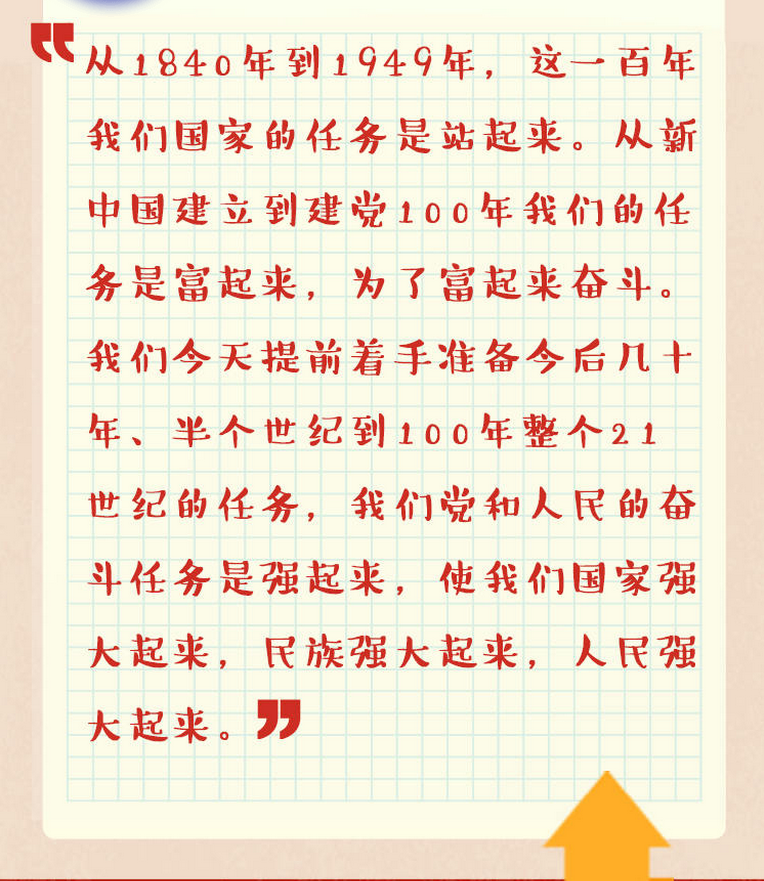 “从1840年到1949年，这一百年
我们国家的任务是站起来。从新
中国建立到建党100年我们的任
务是富起来，为了富起来奋斗。
我们今天提前着手准备今后几十
年、半个世纪到100年整个21
世纪的任务，我们党和人民的奋
斗任务是强起来，使我们国家强
大起来，民族强大起来，人民强
大起来。”